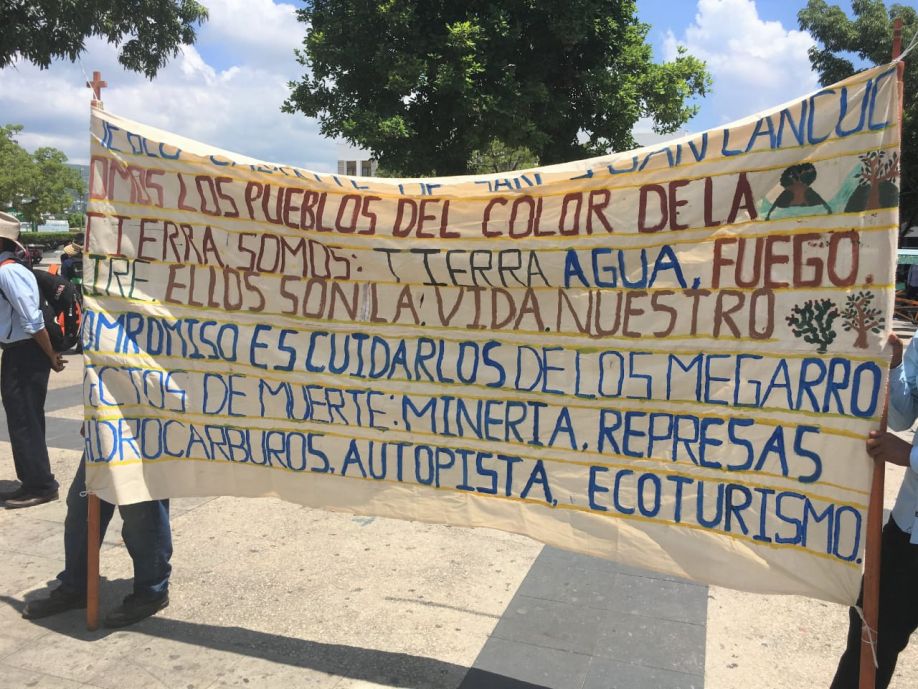 DE SAN JUAN CANCUC
OMOS LOS PUEBLOS DEL COLOR DE LA
TIERRA. SOMOS: TIERRA AGUA, FUEGO.
TRE ELLOS SON LA. VIDA. NUESTRO
OMPROMISO ES CUIDARLOS DE LOS MEGARRO
ECTOS DE MUERTE: MINERIA, REPRESAS
HIDROCARBUROS, AUTOPISTA, ECOTURISMO.